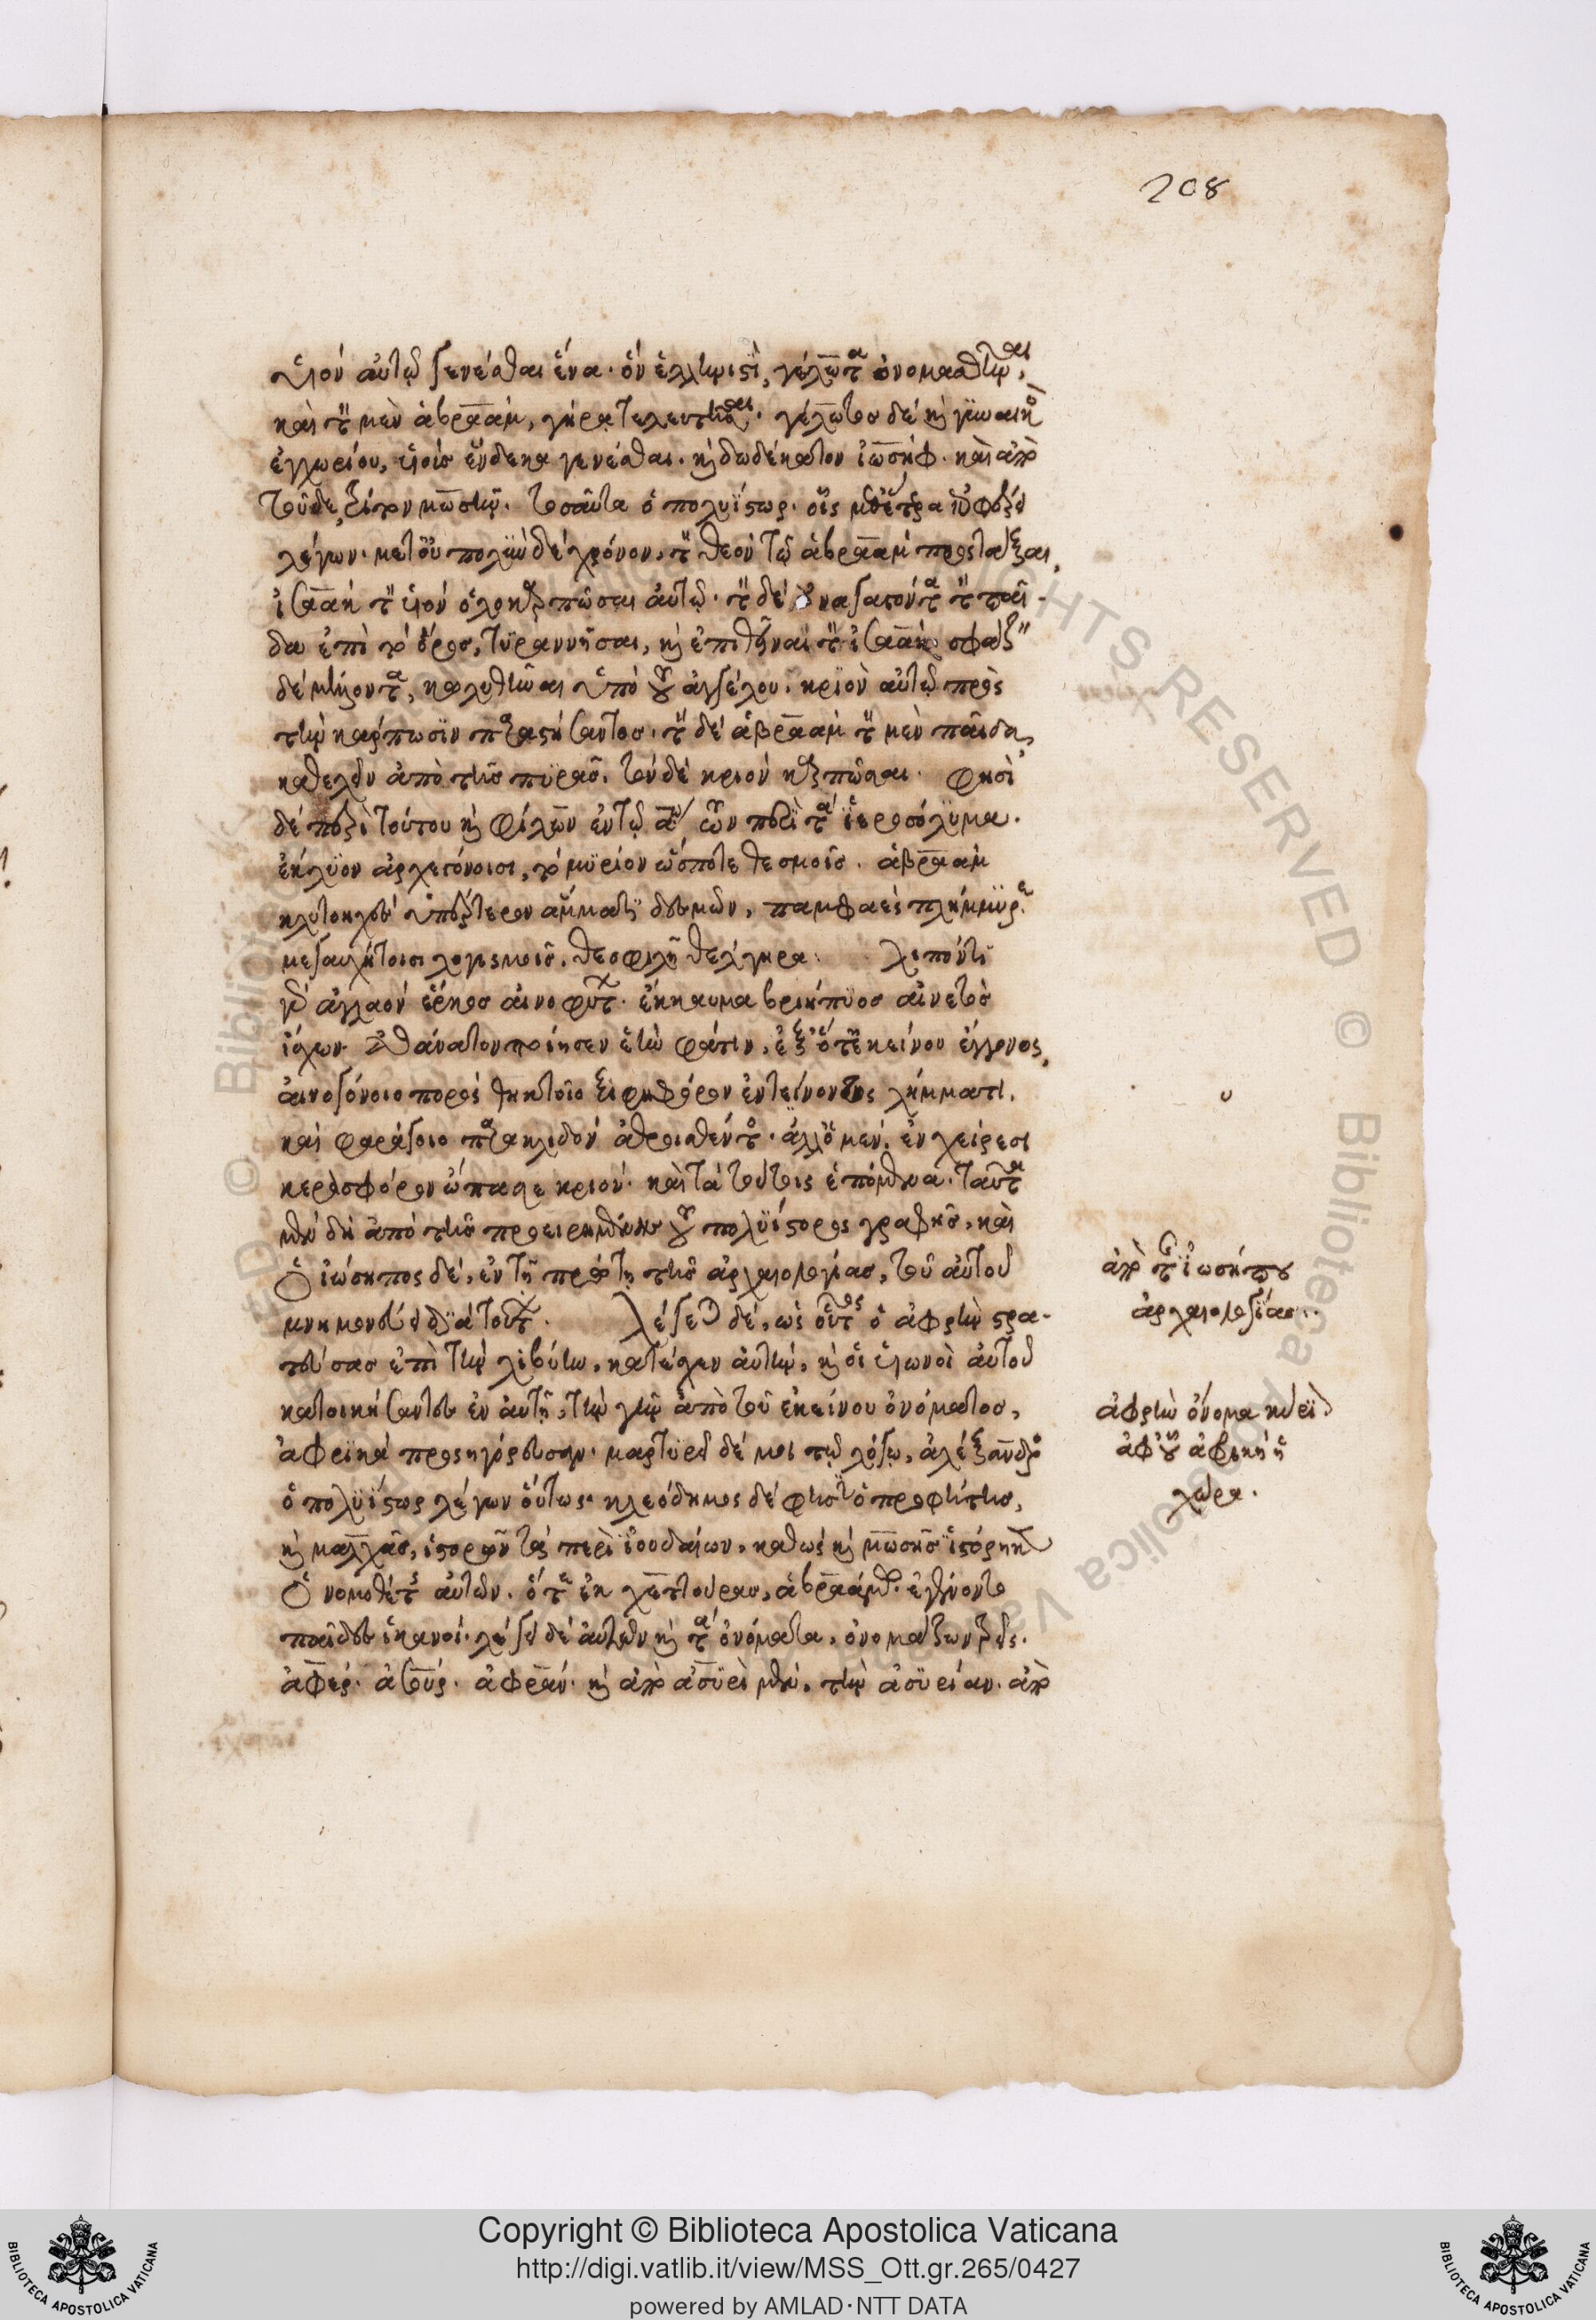 208
υἱὸν αὐτῷ γενέσθαι ἕνα· ὃν ἑλληνιστὶ, γέλωτα ὀνομασθῆναι,
καὶ τὸν μὲν ἀβραὰμ, γήρᾳ τελευτῆσαι· γέλωτος δὲ καὶ γυναικὸς
ἐγχωρίου, υἱοὺς ἕνδεκα γενέσθαι· καὶ δωδέκατον ἰωσὴφ· καὶ ἀπὸ
τοῦδε τρίτον μωσῆν. τοσαῦτα ὁ πολυΐστωρ· οἷς μεθ' ἕτερα ἐπιφέρει
λέγων· μετ' οὐ πολὺν δὲ χρόνον, τὸν θεὸν τῷ ἀβραὰμ προστάξαι,
ἰσαὰκ τὸν υἱὸν ὁλοκαρπῶσαι αὐτῷ· τὸν δὲ ἀναγαγόντα τὸν παῖ-
δα ἐπὶ τὸ ὄρος, πυρὰν νῆσαι, καὶ ἐπιθεῖναι τὸν ἰσαάκ· σφάζειν
δὲ μέλλοντα, κωλυθῆναι ὑπὸ τοῦ ἀγγέλου, κριὸν αὐτῷ πρὸς
τὴν κάρπωσιν παραστήσαντος· τὸν δὲ ἀβραὰμ τὸν μὲν παῖδα
καθελεῖν ἀπὸ τῆς πυρᾶς, τὸν δὲ κριὸν καρπῶσαι. φησὶ
δὲ περὶ τούτου καὶ φίλων ἐν τῷ αῳ τῶν περὶ τὰ ἱεροσόλυμα.
ἔκλυον ἀρχεγόνοισι, τὸ μυρίον ὥς ποτε θεσμοῖς. ἀβραὰμ
κλυτοηχὲς ὑπέρτερον ἅμματι δεσμῶν, παμφαὲς πλήμμυρε
μεγαυχήτοισι λογισμοῖς, θεοφιλῆ θέλγητρα. λιπόντι
γὰρ ἀγλαὸν ἕρκος αἰνοφύτων. ἔκκαυμα βριήπυος αἰνετὸς
ἴσχων ἀθάνατον ποίησεν ἑὴν φάτιν, ἐξ ὅτε κείνου ἔκγονος,
αἰνογόνοιο πορὲς κητοῖο ξιφηφόρον ἐντείνοντος λήμματι,
καὶ φαράγοιο παρακλιδὸν ἀθροισθέντος· ἀλλ' ὁ μὲν, ἐν χείρεσι
κερασφόρον ὤπασε κριόν· καὶ τὰ τούτοις ἑπόμενα. ταῦτα
μὲν δὴ ἀπὸ τῆς προειρημένης τοῦ πολυΐστορος γραφῆς, καὶ
ὁ ἰώσηπος δὲ, ἐν τῇ πρώτῃ τῆς ἀρχαιολογίας, τοῦ αὐτοῦ
μνημονεύει διὰ τούτων. λέγεται δὲ, ὡς οὗτος ὁ ἀφρὴν στρα-
τεύσας ἐπὶ τὴν λιβύην, κατέσχεν αὐτὴν, καὶ οἱ υἱωνοὶ αὐτοῦ
κατοικήσαντες ἐν αὐτῇ, τὴν γῆν ἀπὸ τοῦ ἐκείνου ὀνόματος,
ἀφρικὰ προσηγόρευσαν· μαρτυρεῖ δέ μοι τῷ λόγῳ, ἀλέξανδρος
ὁ πολυΐστωρ λέγων οὕτως· κλεόδημος δέ φησιν ὁ προφήτης,
καὶ μαλχᾶς, ἱστορῶν τὰ περὶ ἰουδαίων, καθὼς καὶ μωσῆς ἱστόρηκεν
ὁ νομοθέτης αὐτῶν, ὅτι ἐκ χεττούρας, ἀβραάμῳ ἐγένοντο
παῖδες ἱκανοί· λέγει δὲ αὐτῶν καὶ τὰ ὀνόματα, ὀνομάζων τρεῖς.
ἀφέρ· ἀσούρ· ἀφράν· καὶ ἀπὸ ἀσουρὶ μὲν, τὴν ἀσυρίαν· ἀπὸ
ἀπὸ τῆς ἰωσήπου
ἀρχαιολογίας.
ἀφρὴν ὄνομα κύριον
ἀφ' οὗ ἀφρικὴ ἡ
χώρα.
Copyright © Biblioteca Apostolica Vaticana
http://digi.vatlib.it/view/MSS_Ott.gr.265/0427
powered by AMLAD·NTT DATA
BIBLIOTECA APOSTOLICA VATICANA
BIBLIOTECA APOSTOLICA VATICANA